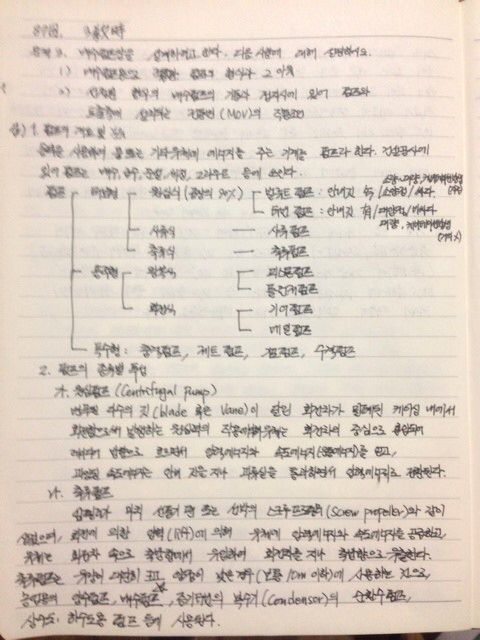 문제 3. 배수펌프장을 설계하려고 한다. 다음 사항에 대해 설명하시오.
1) 배수펌프용으로 적합한 펌프의 형식과 그 이유
2) 선정된 형식의 배수펌프의 기동과 정지시에 있어 펌프와
토출측에 설치되는 전동변(MOV)의
답) 1. 펌프의 개요 및 분류
동력을 사용하여 물 또는 기타유체에 에너지를 주는 기계를 펌프라 한다. 건설공사에
있어 펌프는 배수, 양수, 준설, 세정, 그라우트 등에 쓰인다.
펌프 터보형 원심식 벌류트 펌프 : 안내깃 無 / 소양정 / 싸다
터빈 펌프 : 안내깃 有 / 대양정 / 비싸다
사류식 — 사류펌프
축류식 — 축류펌프
용적형 왕복식 피스톤펌프
플런저펌프
회전식 기어펌프
베인펌프
특수형 : 중력펌프, 제트 펌프, 기포펌프, 수격펌프
2. 펌프의 종류별 특성
가. 원심펌프 (Centrifugal Pump)
변곡된 다수의 깃 (blade 혹은 Vane)이 달린 회전차가 밀폐된 케이싱 내에서
회전함으로써 발생하는 원심력의 작용에 의해 유체는 회전차의 중심으로 흡입되어
반경방향으로 흐르면서 압력에너지와 속도에너지를 얻고,
과잉된 속도에너지는 안내 깃을 지나 과류실을 통과하면서 압력에너지로 전환된다.
나. 축류펌프
임펠러가 마치 선풍기 팬 또는 선박의 스크루프로펠러 (Screw propeller)와 같이
생겼으며, 회전에 의한 양력 (lift)에 의해 유체에 압력에너지와 속도에너지를 공급하고,
유체는 회전차 속으로 축방향에서 유입하여 회전차를 지나 축방향으로 유출한다.
축류펌프는 유량이 대단히 크고 양정이 낮은 경우 (보통 10m 이하)에 사용하는 것으로,
농업용의 양수펌프, 배수펌프, 증기터빈의 복수기 (Condensor)의 순환수펌프,
상수도·하수도용 펌프 등에 사용된다.